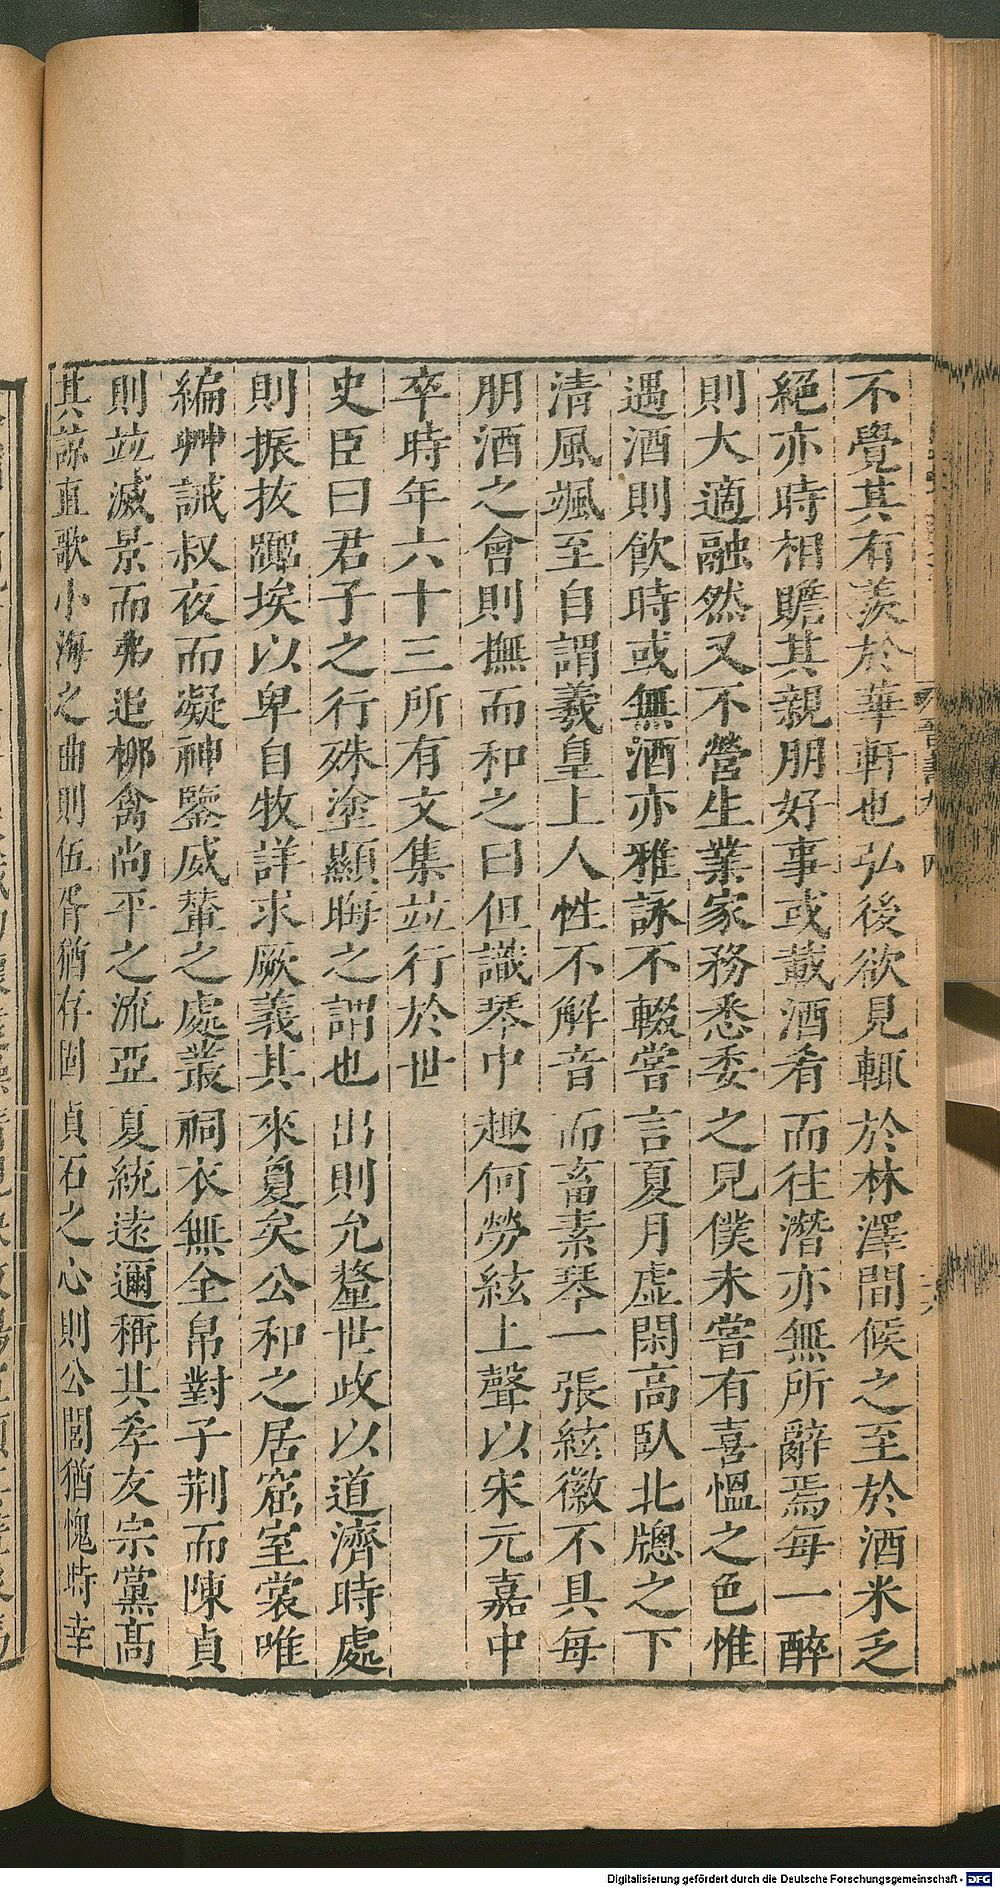 不覺其有羨於華軒也弘後欲見輒於林澤間候之至於酒米乏
絕亦時相贍其親朋好事或載酒肴而往潛亦無所辭焉每一醉
則大適融然又不營生業家務悉委之見僕未嘗有喜慍之色惟
遇酒則飲時或無酒亦雅詠不輟嘗言夏月虛閑高臥北牕之下
清風颯至自謂羲皇上人性不解音而畜素琴一張絃徽不具每
朋酒之會則撫而和之曰但識琴中趣何勞絃上聲以宋元嘉中
卒時年六十三所有文集竝行於世
史臣曰君子之行殊塗顯晦之謂也出則允釐世政以道濟時處
則振拔囂埃以卑自牧詳求厥義其來夐矣公和之居窟室裳唯
編艸誡叔夜而凝神鑒威輦之處叢祠衣無全帛對子荆而陳貞
則竝滅景而弗追柳禽尚平之流亞夏統遠邇稱其孝友宗黨高
其諒直歌小海之曲則伍胥猶存固貞石之心則公閭猶愧時幸
Digitalisierung gefördert durch die Deutsche Forschungsgemeinschaft - DFG